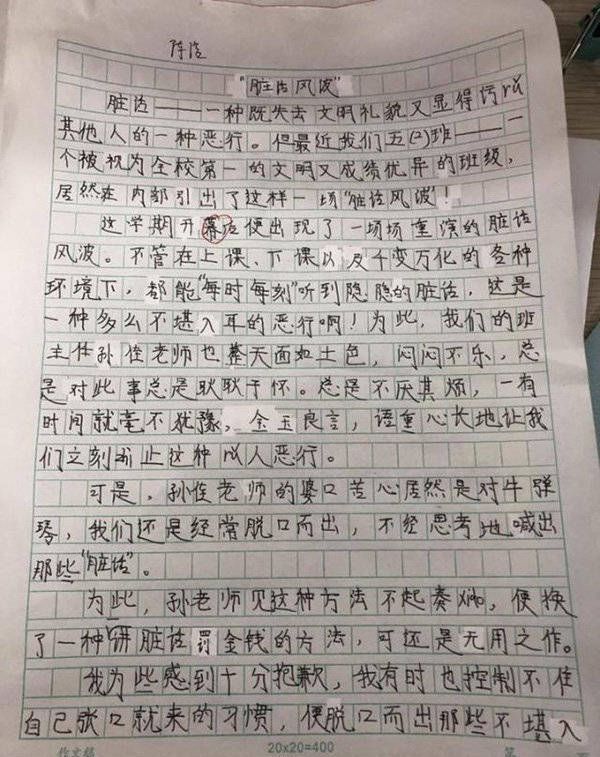 陈洁
“脏话风波”
脏话——一种既失去文明礼貌又显得污rǔ
其他人的一种恶行。但最近我们五(2)班——一
个被视为全校第一的文明又成绩优异的班级，
居然在内部引出了这样一场“脏话风波”！
这学期开幕后便出现了一场场重演的脏话
风波。不管在上课、下课以及千变万化的各种
环境下，都能“每时每刻”听到隐隐的脏话，这是
一种多么不堪入耳的恶行啊！为此，我们的班
主任孙佳老师也整天面如土色，闷闷不乐，总
是对此事总是耿耿于怀。总是不厌其烦，一有
时间就毫不犹豫，金玉良言，语重心长地让我
们立刻止这种以人恶行。
可是，孙佳老师的婆口苦心居然是对牛弹
琴，我们还是经常脱口而出，不经思考地喊出
那些“脏话”。
为此，孙老师见这种方法不起奏效，便换
了一种“讲脏话罚金钱的方法，可还是无用之作。
我为些感到十分抱歉，我有时也控制不住
自己张口就来的习惯，便脱口而出那些不堪入
作文稿
20x20=400
第